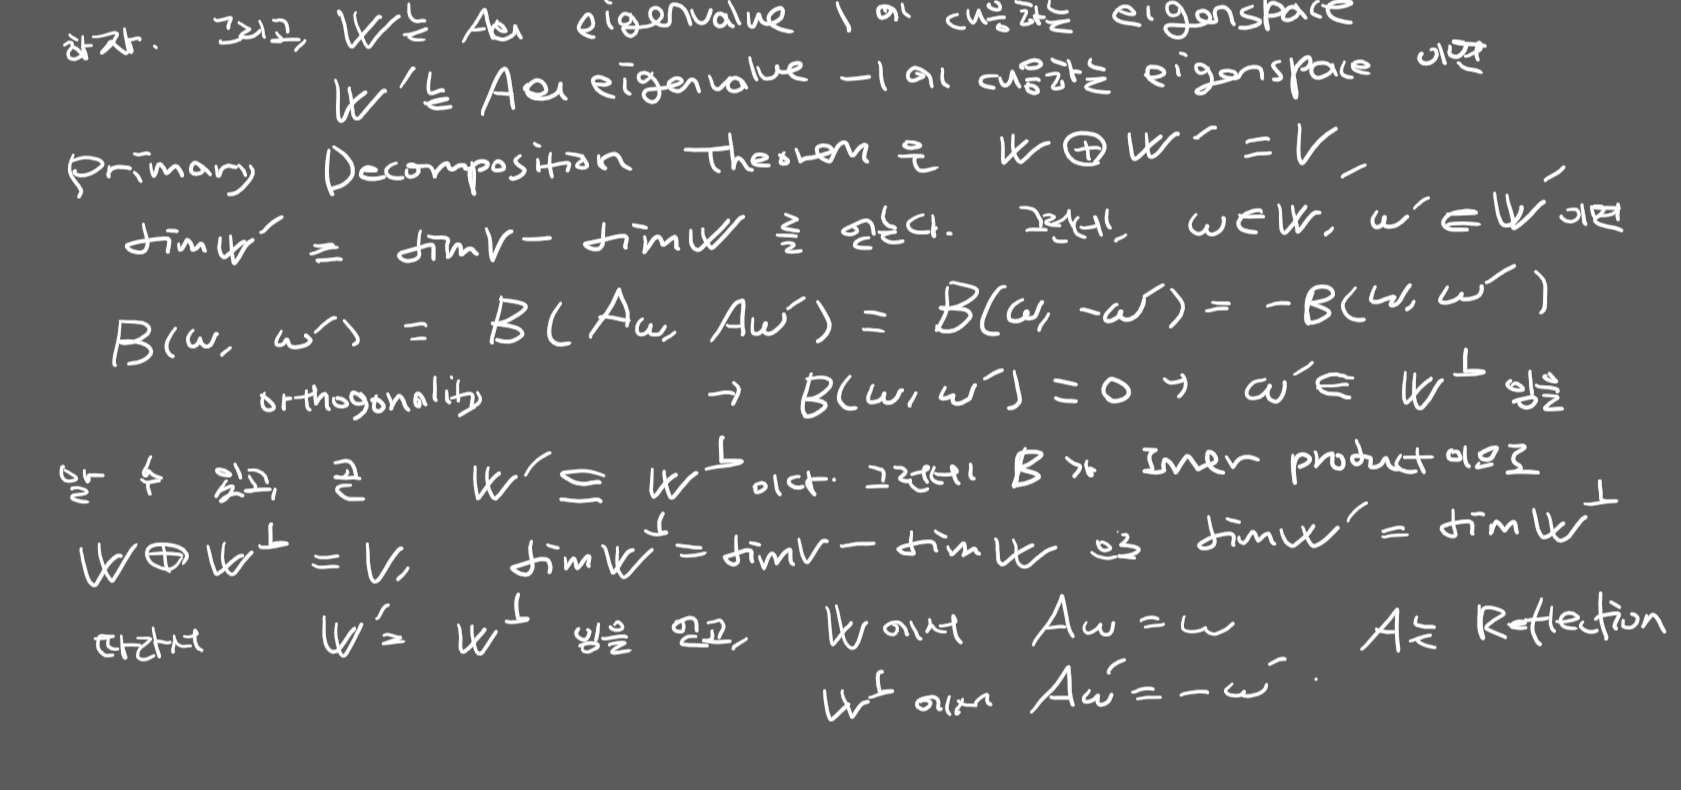 하자. 그리고, W는 A의 eigenvalue 1에 대응하는 eigenspace
W′는 A의 eigenvalue -1에 대응하는 eigenspace 이면
Primary Decomposition Theorem은 W ⊕ W′ = V,
dim W′ = dim V - dim W 를 얻는다. 그런데, w ∈ W, w′ ∈ W′이면
B(w, w′) = B(Aw, Aw′) = B(w, -w′) = -B(w, w′)
orthogonality → B(w, w′) = 0, w′ ∈ W^⊥ 임을
알 수 있고, 곧 W′ ⊆ W^⊥이다. 그런데 B가 Inner product이므로
W ⊕ W^⊥ = V, dim W^⊥ = dim V - dim W 으로 dim W′ = dim W^⊥
따라서 W′ = W^⊥ 임을 얻고, W에서 Aw = w A는 Reflection
W^⊥에서 Aw′ = -w′.